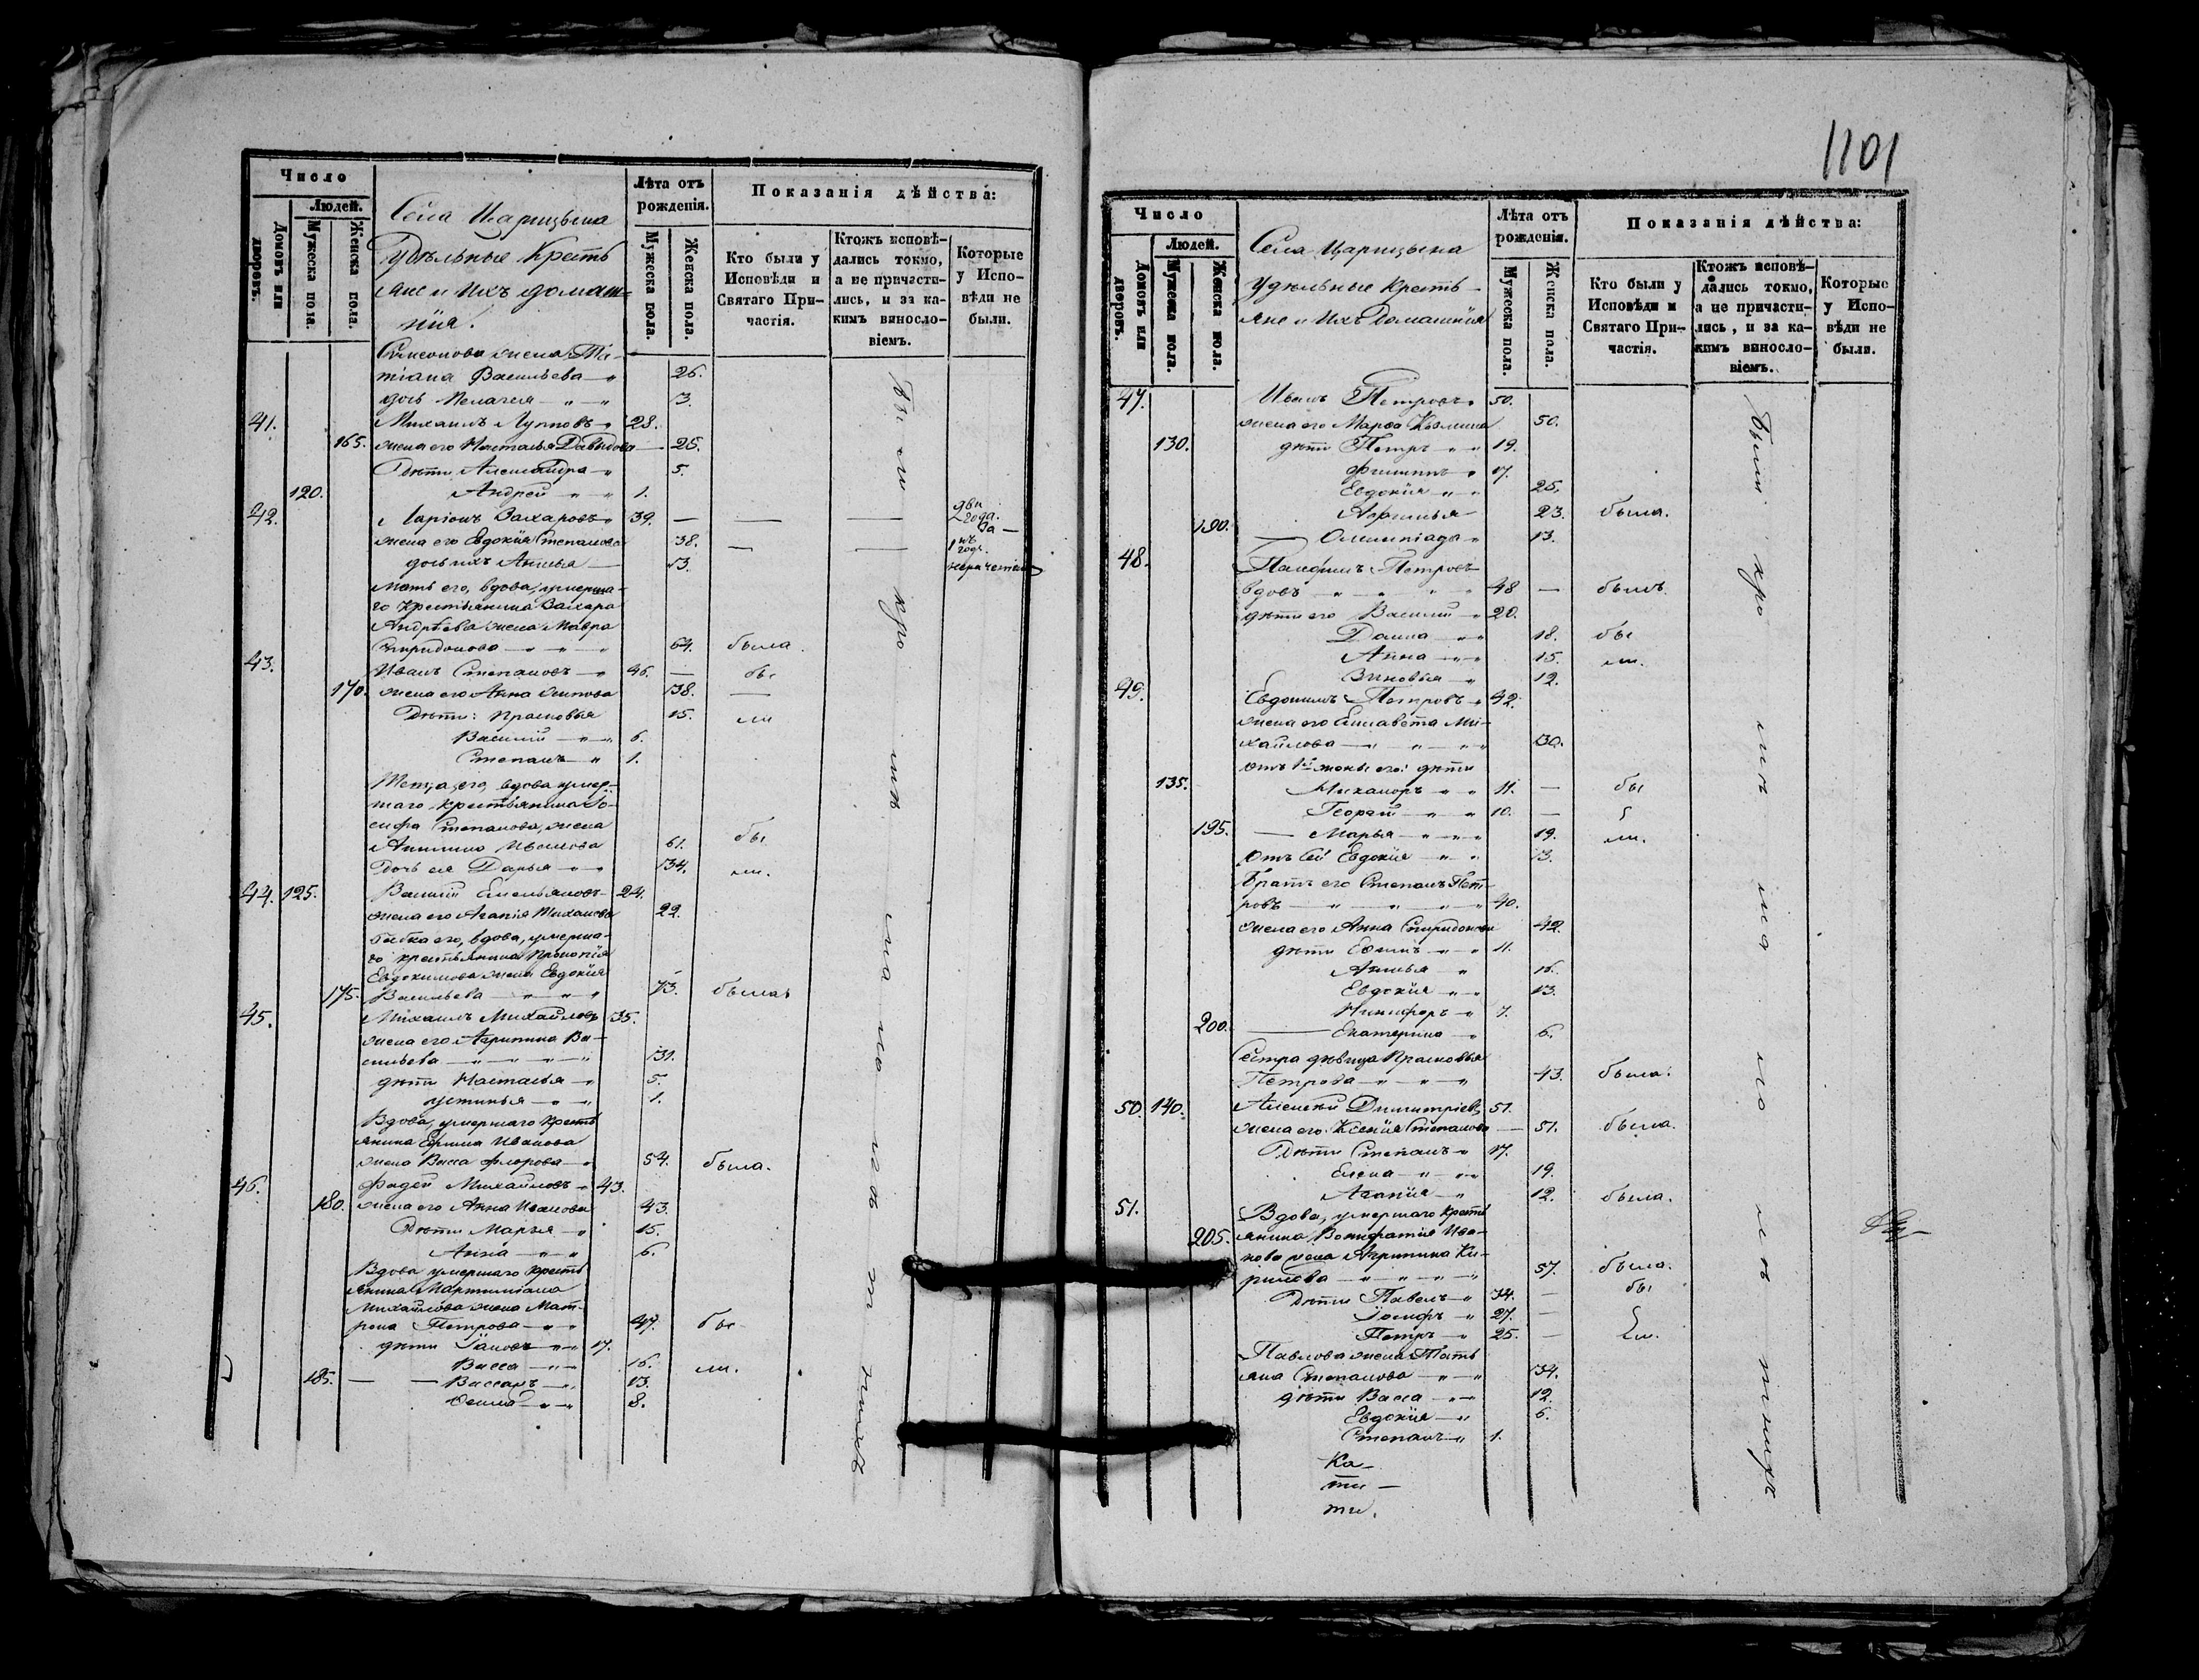 Число
Людей.
Домовъ или дворовъ.
Мужеска пола.
Женска пола.
Села Царицына
Удѣльные Кресть
яне и Ихъ домаш-
нія.
Лѣта отъ рожденія.
Мужеска пола.
Женска пола.
Показанія дѣйства:
Кто были у Исповѣди и Святаго При-частія.
Ктожъ исповѣ-дались токмо, а не причасти-лись, и за ка-кимъ винословіемъ.
Которые у Испо-вѣди не были.
жена Та-
тіана Васильева 26.
дочь Пелагея 3.
41. Михаилъ 28.
165. жена его Наталья Давидова 25.
Дѣти Александра 5.
120. Андрей 1.
42. Ларіонъ Захаровъ 39.
жена его Евдокія Степанова 38.
дочь ихъ 13.
Мать его, вдова, умерша-
го крестьянина Захара
Андрѣева жена Мавра
Спиридонова 64. была.
43. Иванъ Степановъ 46. бы
170. жена его Анна Осипова 38.
Дѣти: Прасковья 15. ли
Василій 6.
Степанъ 1.
Теща его, вдова умер-
шаго крестьянина Іо-
сифа Степанова, жена
Иванова 61. бы
Дочь ея Дарья 34. ли.
44. 125. Василій Емельяновъ 24.
жена его Агапія 22.
бабка его, вдова, умерша-
го крестьянина Прокопія
Евдокимова жена Евдокія
175. Васильева 73. была
45. Михаилъ Михайловъ 35.
жена его Агрипина Ва-
сильева 31.
дѣти Наталья 5.
Устинья 1.
Вдова, умершаго кресть
янина Ефима Иванова
жена Васса Флорова 54. была.
46. Фадей Михайловъ 43.
180. жена его Анна Иванова 43.
Дѣти Марья 15.
Анна 6.
Вдова умершаго кресть
янина Мартиніана
Михайлова жена Мат-
рена Петрова 47. бы
дѣти 17.
Васса 16. ли.
185. 13.
8.
1101
Число
Людей.
Домовъ или дворовъ.
Мужеска пола.
Женска пола.
Села Царицына
Удѣльные Кресть-
яне и Ихъ Домашнія
Лѣта отъ рожденія.
Мужеска пола.
Женска пола.
Показанія дѣйства:
Кто были у Исповѣди и Святаго При-частія.
Ктожъ исповѣ-дались токмо, а не причасти-лись, и за ка-кимъ винословіемъ.
Которые у Испо-вѣди не были.
47. Иванъ Петровъ 50.
жена его Марѳа Козмина 50.
130. дѣти Петръ 19.
Филиппъ 17.
Евдокія 25.
Аѳимья 23. была.
190. Олимпіада 13.
48. Панфилъ Петровъ
вдовъ 48 былъ
дѣти его Василій 20.
Домна 18. бы
Анна 15. ли.
Зиновья 12.
49. Евдокимъ Петровъ 42.
жена его Елисавета Ми-
хайлова 30.
отъ 1й жены его: дѣти
135. Никаноръ 11. бы
Георгій 10.
195. Марья 19. ли.
Отъ сей Евдокія 3.
Братъ его Степанъ Пет-
ровъ 40.
жена его Анна Спиридонова 42.
дѣти 11.
16.
Евдокія 13.
Никифоръ 7.
200. Екатерина 6.
Сестра дѣвица Прасковья
Петрова 43. была.
50. 140. Алексѣй Димитріевъ 51.
жена его Ксенія Степанова 51. была.
Дѣти Степанъ 17.
Елена 19.
Агапія 12. была.
51. Вдова, умершаго кресть
205. янина Вонифатія Ива-
нова жена Агрипина Ки-
рилова 57. была.
Дѣти Павелъ 34. бы
Іосифъ 27.
Петръ 25. ли.
Павлова жена Тать
яна Степанова 34.
дѣти Васса 12.
Евдокія 6.
Степанъ 1.
Ка-
ти-